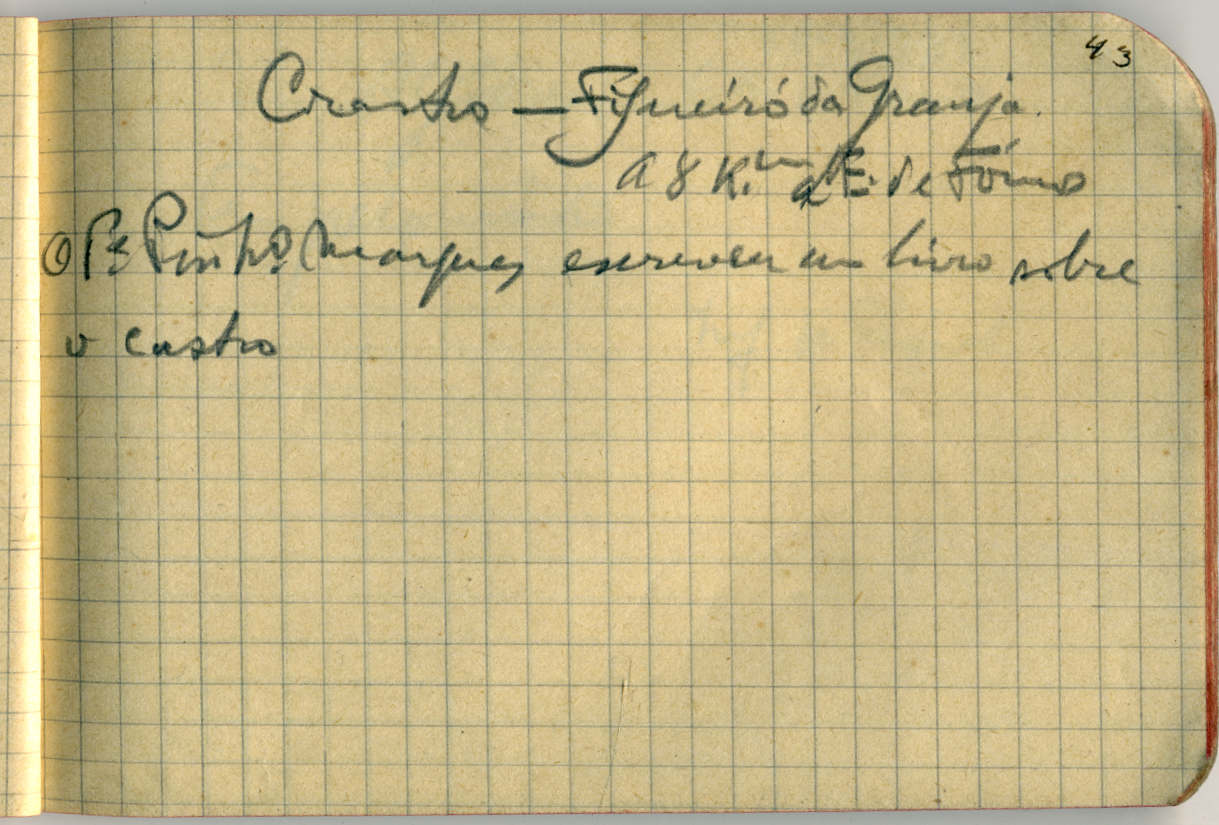 43
Crastro — Figueiró da Granja.
a 8 K.m a E. de Fórno
O Pe Pinho Marques escreveu um livro sobre
o castro